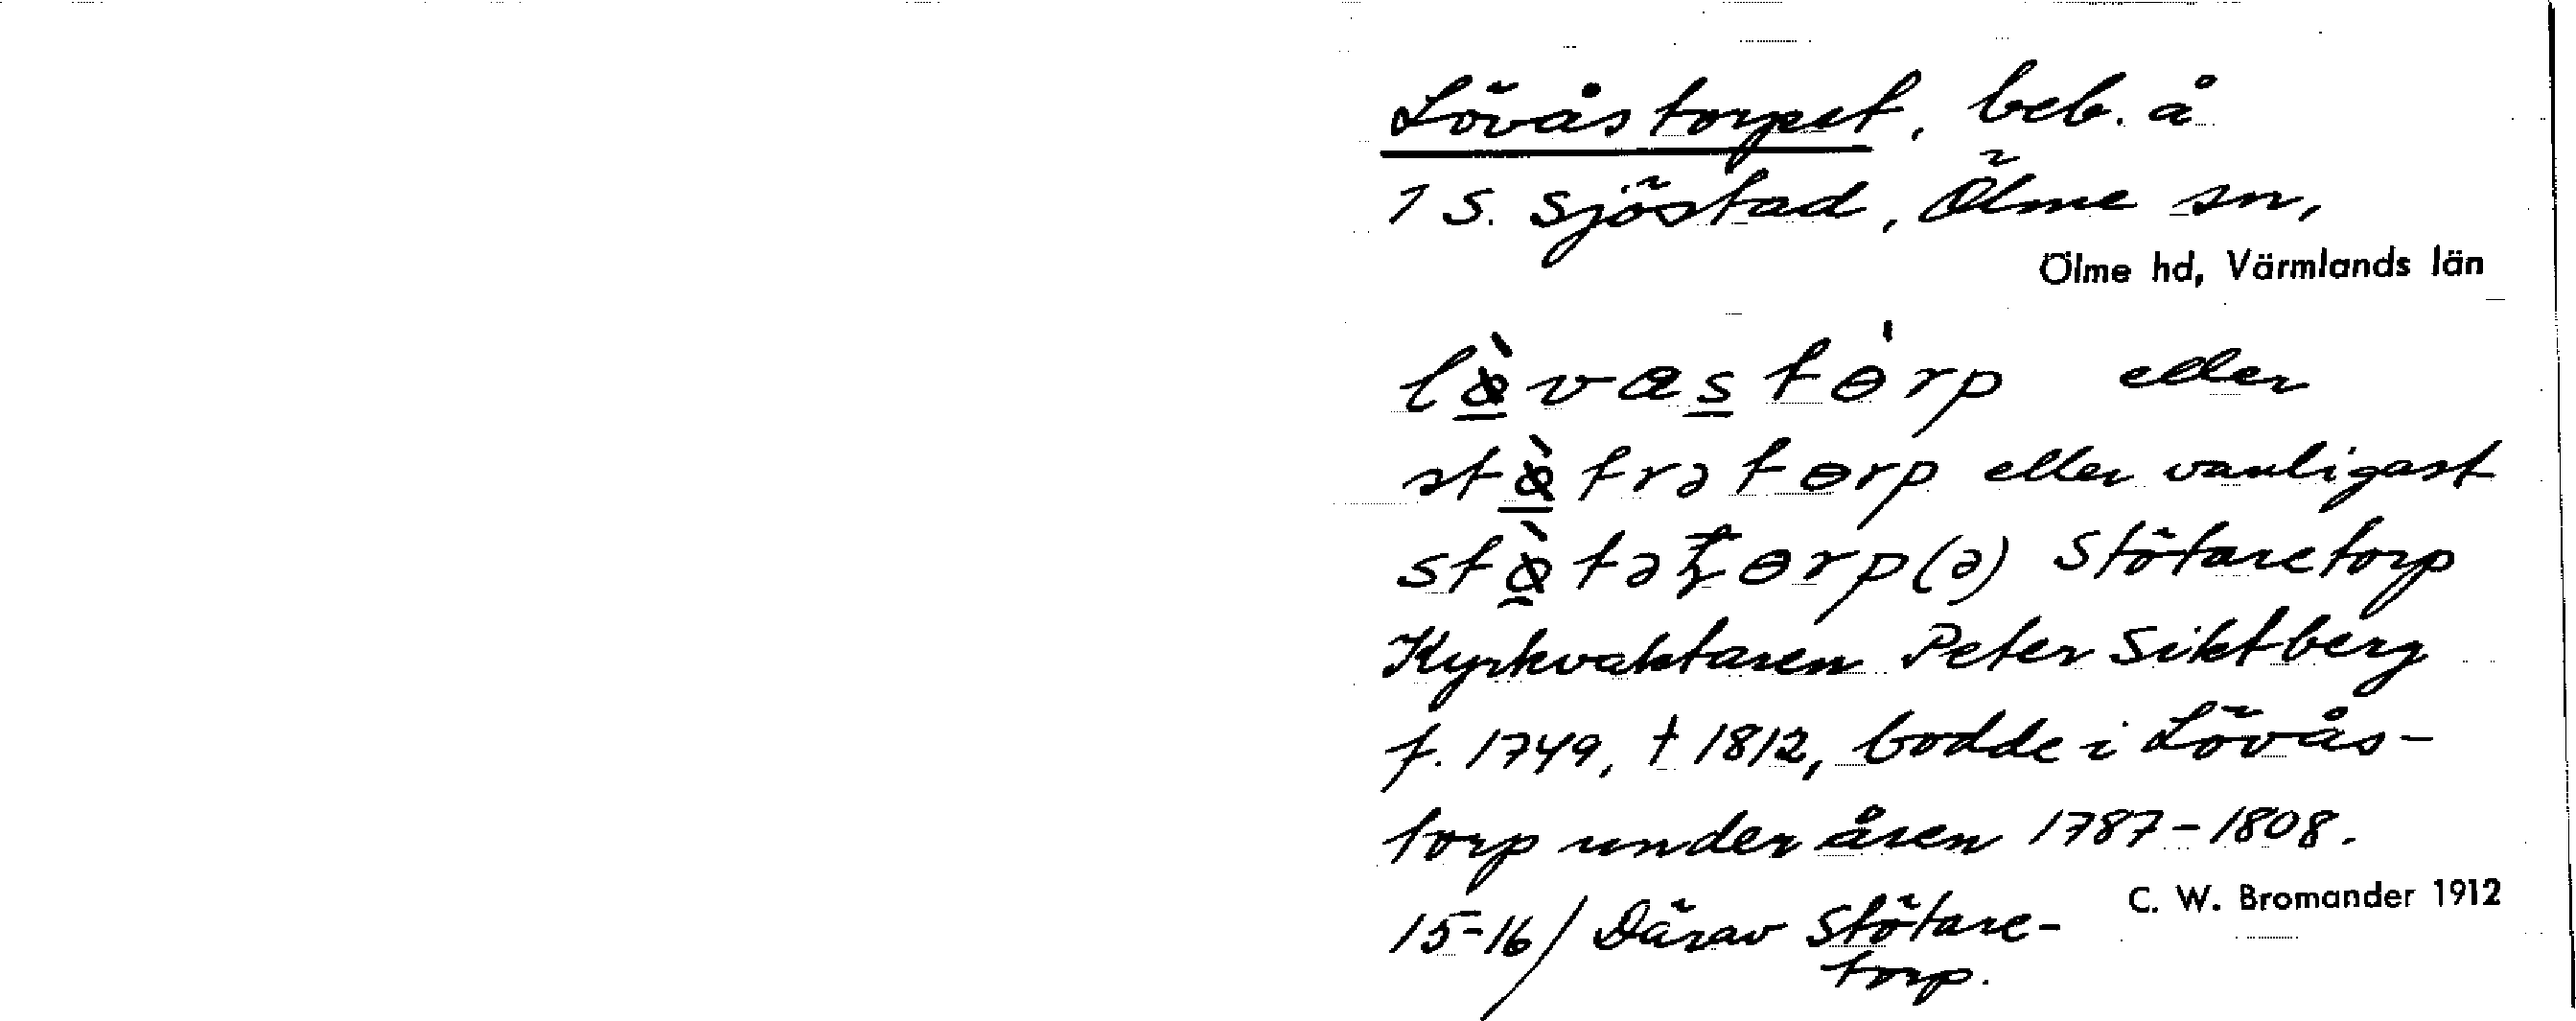 Lövåstorpet, beb. å
1 S. Sjöstad, Ölme sn,
Ölme hd, Värmlands län
lø̀vas tɵ̀rp eller
stø̀trətɵrp eller vanligast
stø̀təʈɵrp(ə) Stötaretorp
Kyrkvaktaren Peter Siktberg
f. 1749, † 1812, bodde i Lövås-
torp under åren 1787-1808.
15-16/ Därav Stötare-
torp.
C. W. Bromander 1912